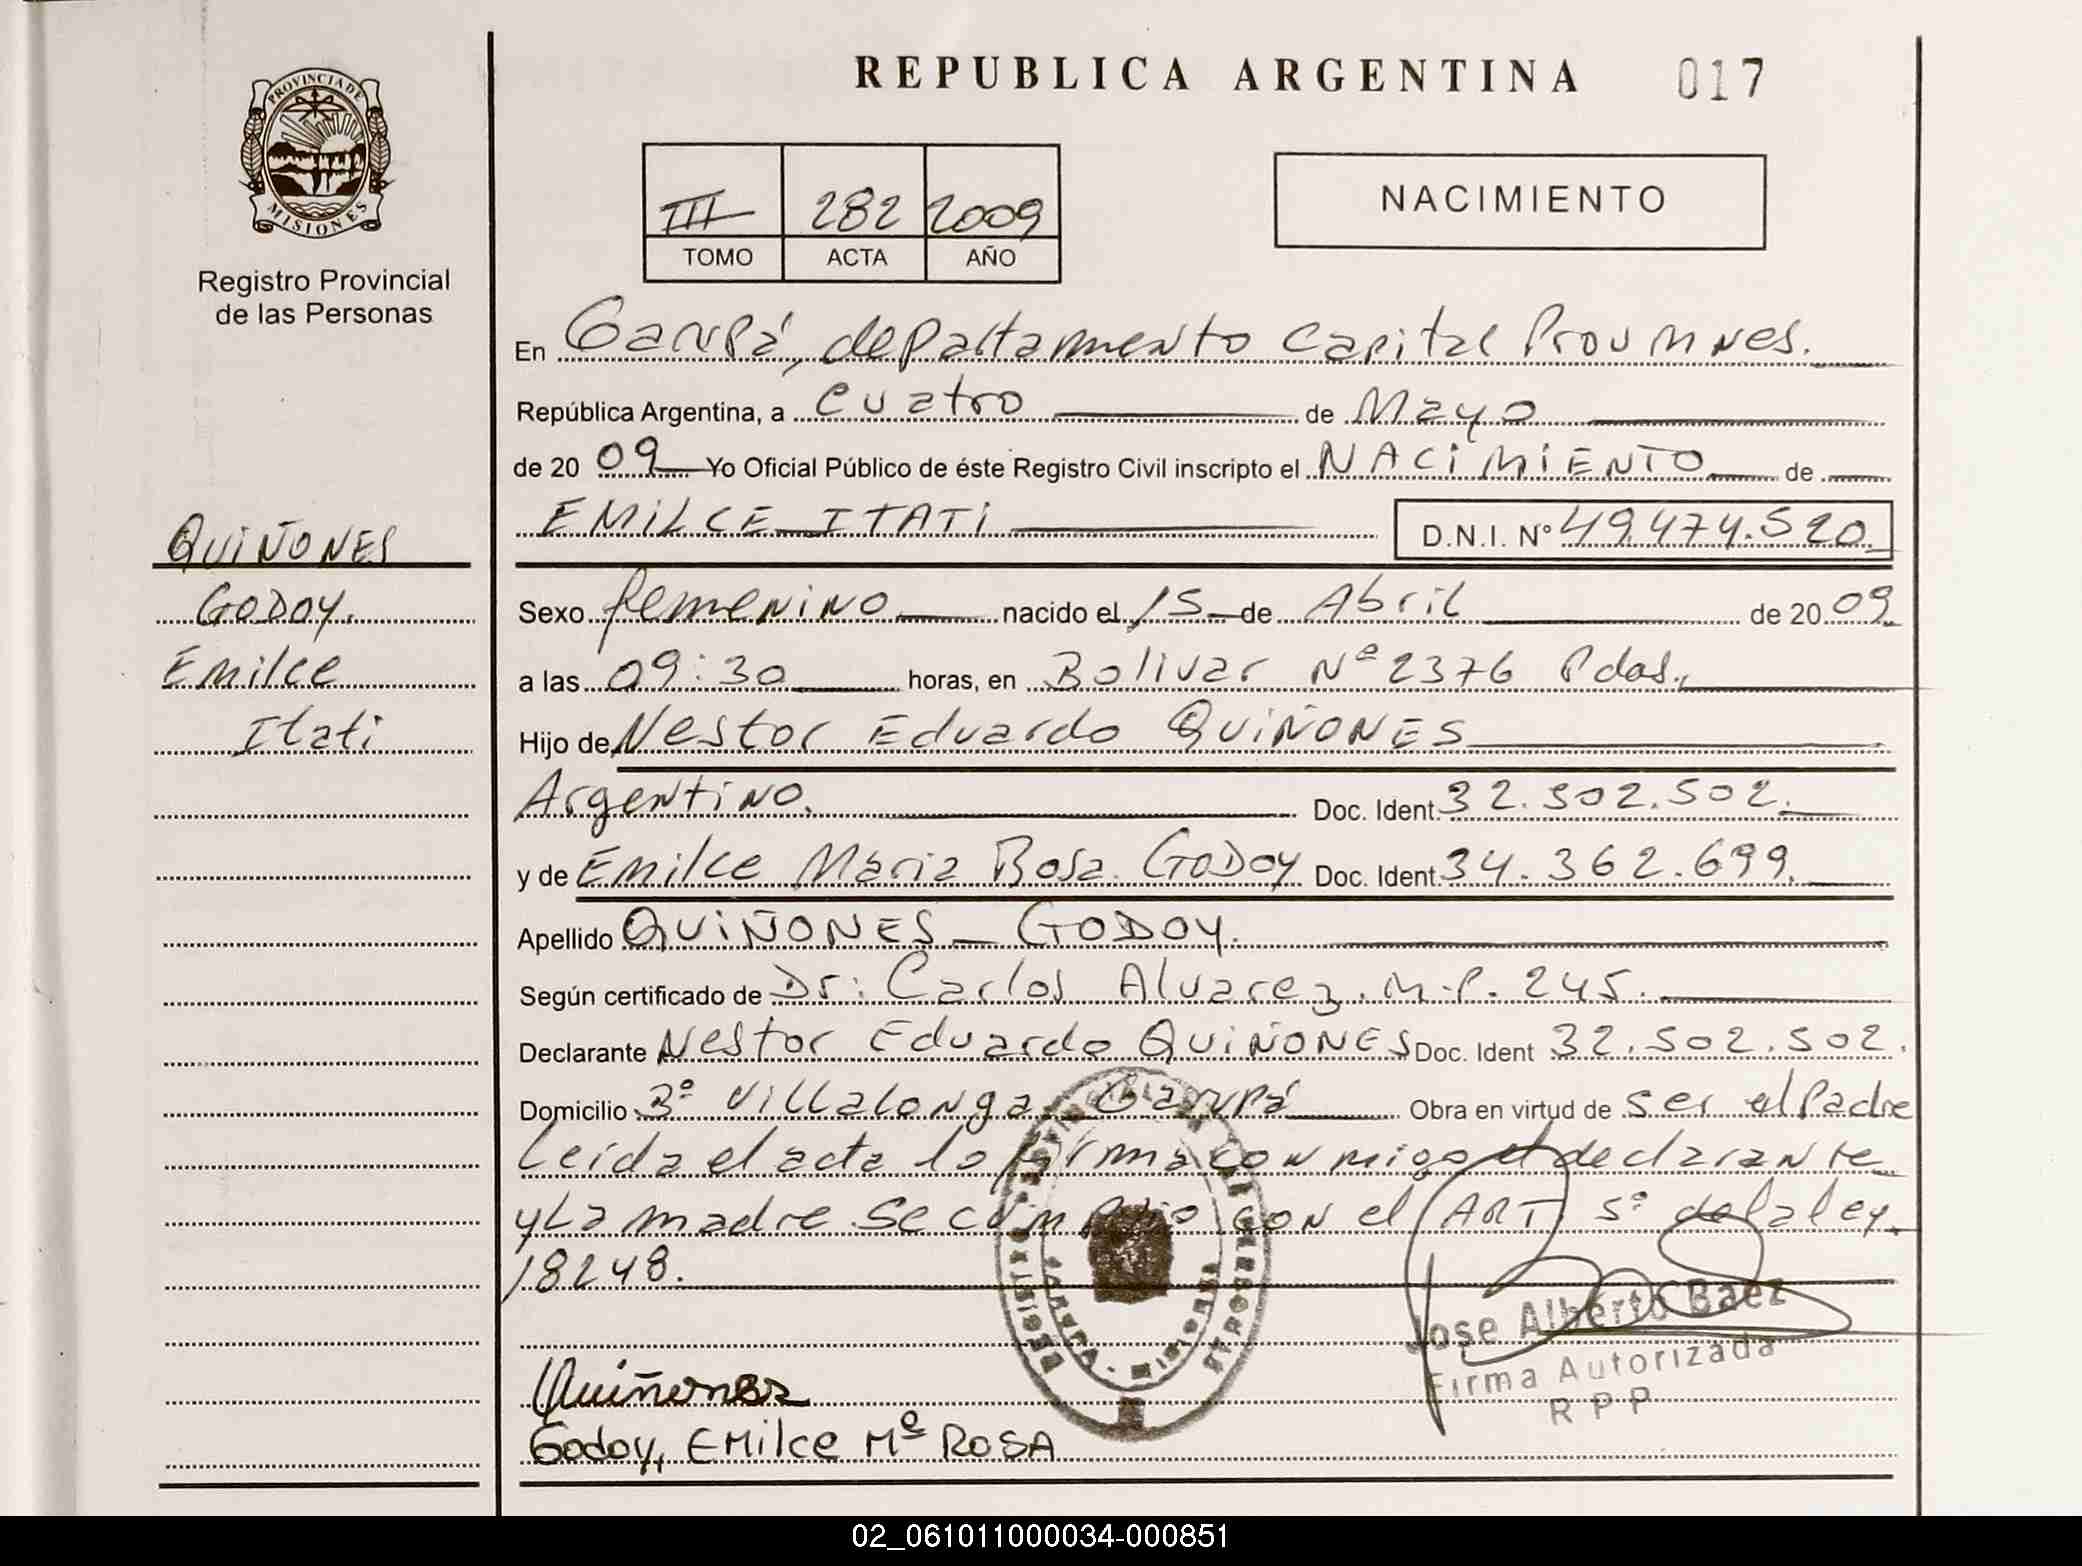 REPUBLICA ARGENTINA 017
PROVINCIA DE
MISIONES
Registro Provincial
de las Personas
III 282 2009
TOMO ACTA AÑO
NACIMIENTO
En Garupá, departamento Capital Prov Mnes.
República Argentina, a Cuatro de Mayo
de 20 09 Yo Oficial Público de éste Registro Civil inscripto el NACIMIENTO de
EMILCE ITATI D.N.I. Nº 49.474.520
QUIÑONES
GODOY.
Emilce
Itati
Sexo femenino nacido el 15 de Abril de 20 09
a las 09:30 horas, en Bolivar Nº 2376 Pdas.
Hijo de Nestor Eduardo QUIÑONES
Argentino. Doc. Ident. 32.502.502.
y de Emilce Maria Rosa GODOY Doc. Ident. 34.362.699.
Apellido QUIÑONES - GODOY.
Según certificado de Dr: Carlos Alvarez. M.P. 245.
Declarante Nestor Eduardo QUIÑONES Doc. Ident 32.502.502.
Domicilio Bº Villalonga Garupá Obra en virtud de ser el Padre
Leída el acta lo firma conmigo el declarante
y La madre Se cumplio con el ART 5º de la ley
18248.
Jose Alberto Baez
Firma Autorizada
R P P
Quiñones
Godoy, EMilce Mª ROSA
02_061011000034-000851